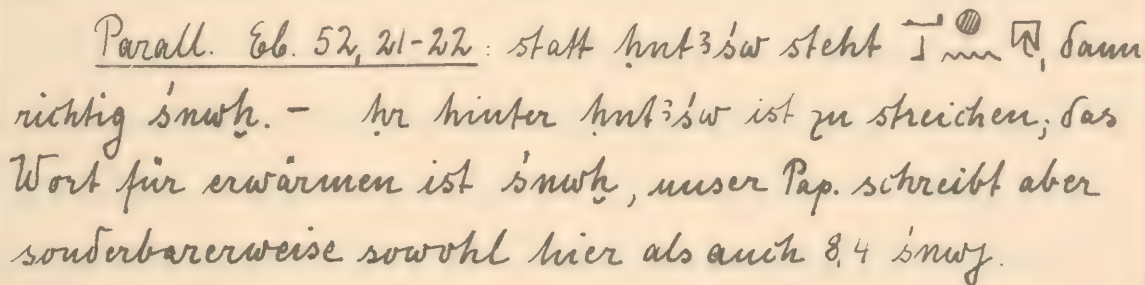 Parall. Eb. 52, 21-22: statt ḥntꜣśw steht , dann
richtig śnwḫ. - ḥr hinter ḥntꜣśw ist zu streichen; das
Wort für erwärmen ist śnwḫ, unser Pap. schreibt aber
sonderbarerweise sowohl hier als auch 8,4 śnwj.